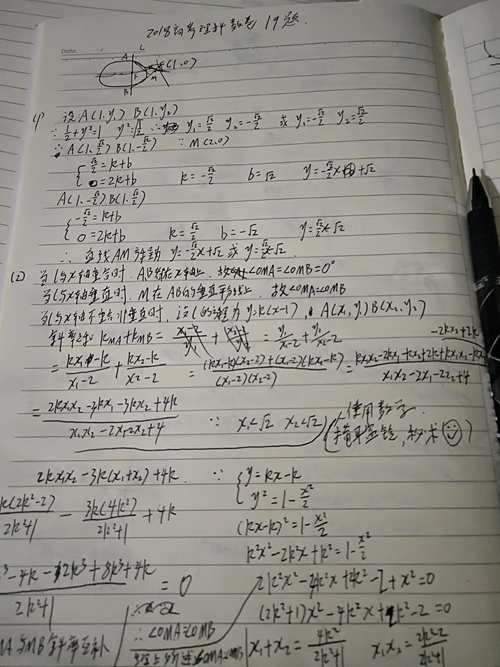 2018高考理科数卷 19题.
A L
F(1.0)
M
B
(1) 设 A(1.y₁) B(1.y₂)
∵ 1/2+y²=1 y²=1/2 ∴ y₁=√2/2 y₂=-√2/2 或 y₁=-√2/2 y₂=√2/2
∴ A(1.√2/2) B(1.-√2/2) ∵ M(2.0)
{ √2/2=k+b
0=2k+b k=-√2/2 b=√2 y=-√2/2x+√2
A(1.-√2/2) B(1.√2/2)
{ -√2/2=k+b
0=2k+b k=√2/2 b=-√2 y=√2/2x-√2
∴ 直线AM y=-√2/2x+√2 或 y=√2/2x-√2
(2) 当l与x轴重合时. AB都在x轴上. 故 ∠OMA=∠OMB=0°
当l与x轴垂直时. M在AB的垂直平分线上. 故∠OMA=∠OMB
当l与x轴不重合非垂直时. 设l的方程为 y=k(x-1), A(x₁.y₁) B(x₂.y₂)
kMA+kMB= y₁/x₁-2 + y₂/x₂-2
= kx₁-k/x₁-2 + kx₂-k/x₂-2 = (kx₁-k)(x₂-2)+(x₁-2)(kx₂-k)/(x₁-2)(x₂-2) = kx₁x₂-2kx₁-kx₂+2k+kx₁x₂-kx₁-2kx₂+2k/x₁x₂-2x₁-2x₂+4
= 2kx₁x₂-3kx₁-3kx₂+4k/x₁x₂-2x₁-2x₂+4 ∵ x₁<√2 x₂<√2 (使用数学
2kx₁x₂-3k(x₁+x₂)+4k ∵ { y=kx-k
y²=1-x²/2
k(2k²-2)/2k²+1 - 3k(4k²)/2k²+1 +4k (kx-k)²=1-x²/2
k²x²-2k²x+k²=1-x²/2
³-4k-12k³+8k³+4k/2k²+1 =0 2k²x²-4k²x+2k²-2+x²=0
(2k²+1)x²-4k²x+2k²-2=0
MA与MB斜率互补 ∴∠OMA=∠OMB x₁+x₂=4k²/2k²+1 x₁x₂=2k²-2/2k²+1
∠OMA=∠OMB